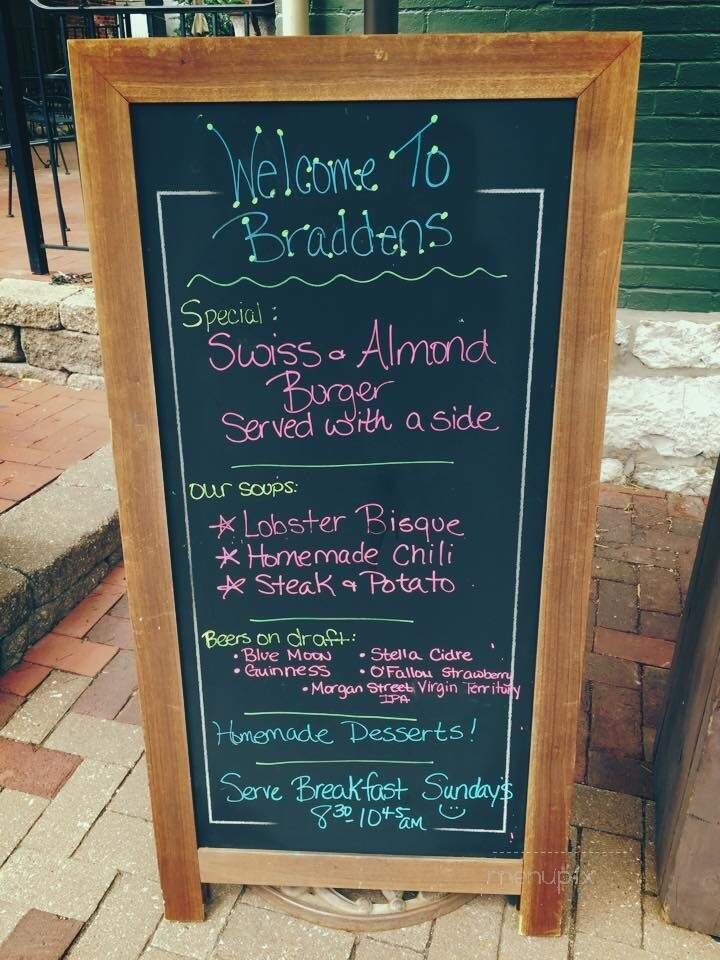 Welcome To
Braddens
Special:
Swiss & Almond
Burger
Served with a side
our soups:
☆ Lobster Bisque
☆ Homemade Chili
☆ Steak & Potato
Beers on draft:
• Blue Moon • Stella Cidre
• Guinness • O'Fallon Strawberry
• Morgan Street Virgin Territory
IPA
Homemade Desserts!
Serve Breakfast Sunday's
8:30 10:45 am
menupix